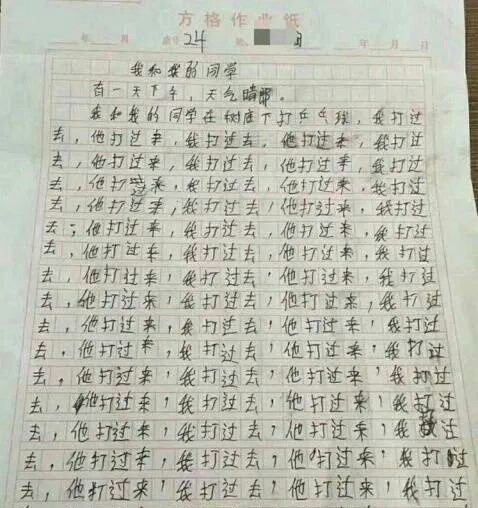 方格作业纸
年 月 24 年 月 日
我和我的同学
有一天下午，天气晴朗。
我和我的同学在树底下打乒乓球，我打过
去，他打过来，我打过去，他打过来，我打过
去，他打过来，我打过去，他打过来，我打过
去，他打过来，我打过去，他打过来，我打过
去，他打过来，我打过去，他打过来，我打过
去，他打过来，我打过去，他打过来，我打过
去，他打过来，我打过去，他打过来，我打过
去，他打过来，我打过去，他打过来，我打过
去，他打过来，我打过去，他打过来，我打过
去，他打过来，我打过去，他打过来，我打过
去，他打过来，我打过去，他打过来，我打过
去，他打过来，我打过去，他打过来，我打过
去，他打过来，我打过去，他打过来，我打过
去，他打过来，我打过去，他打过来，我过
去，他打过来，我打过去，他打过来，我打过
去，他打过来，我打过去，他打过来，我打过